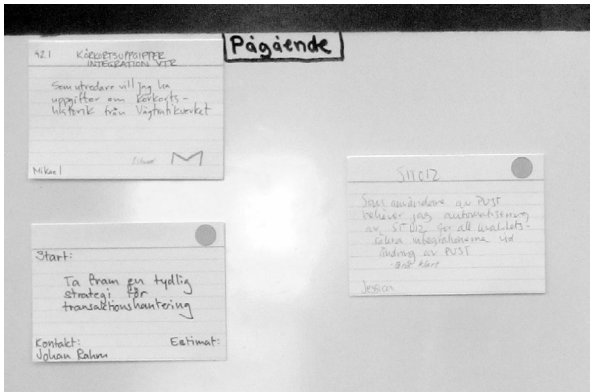 Pågående
421 KÖRKORTSUPPGIFTER
INTEGRATION VTR
Som utredare vill jag ha
uppgifter om körkorts-
historik från Vägtrafikverket
M
Mikael
Start:
Ta fram en tydlig
strategi för
transaktionshantering
Kontakt: Estimat:
Johan Rahm
Som användare av PUST
behöver jag automatisering
av för att kvalitets-
säkra integrationerna vid
ändring av PUST
Jessica